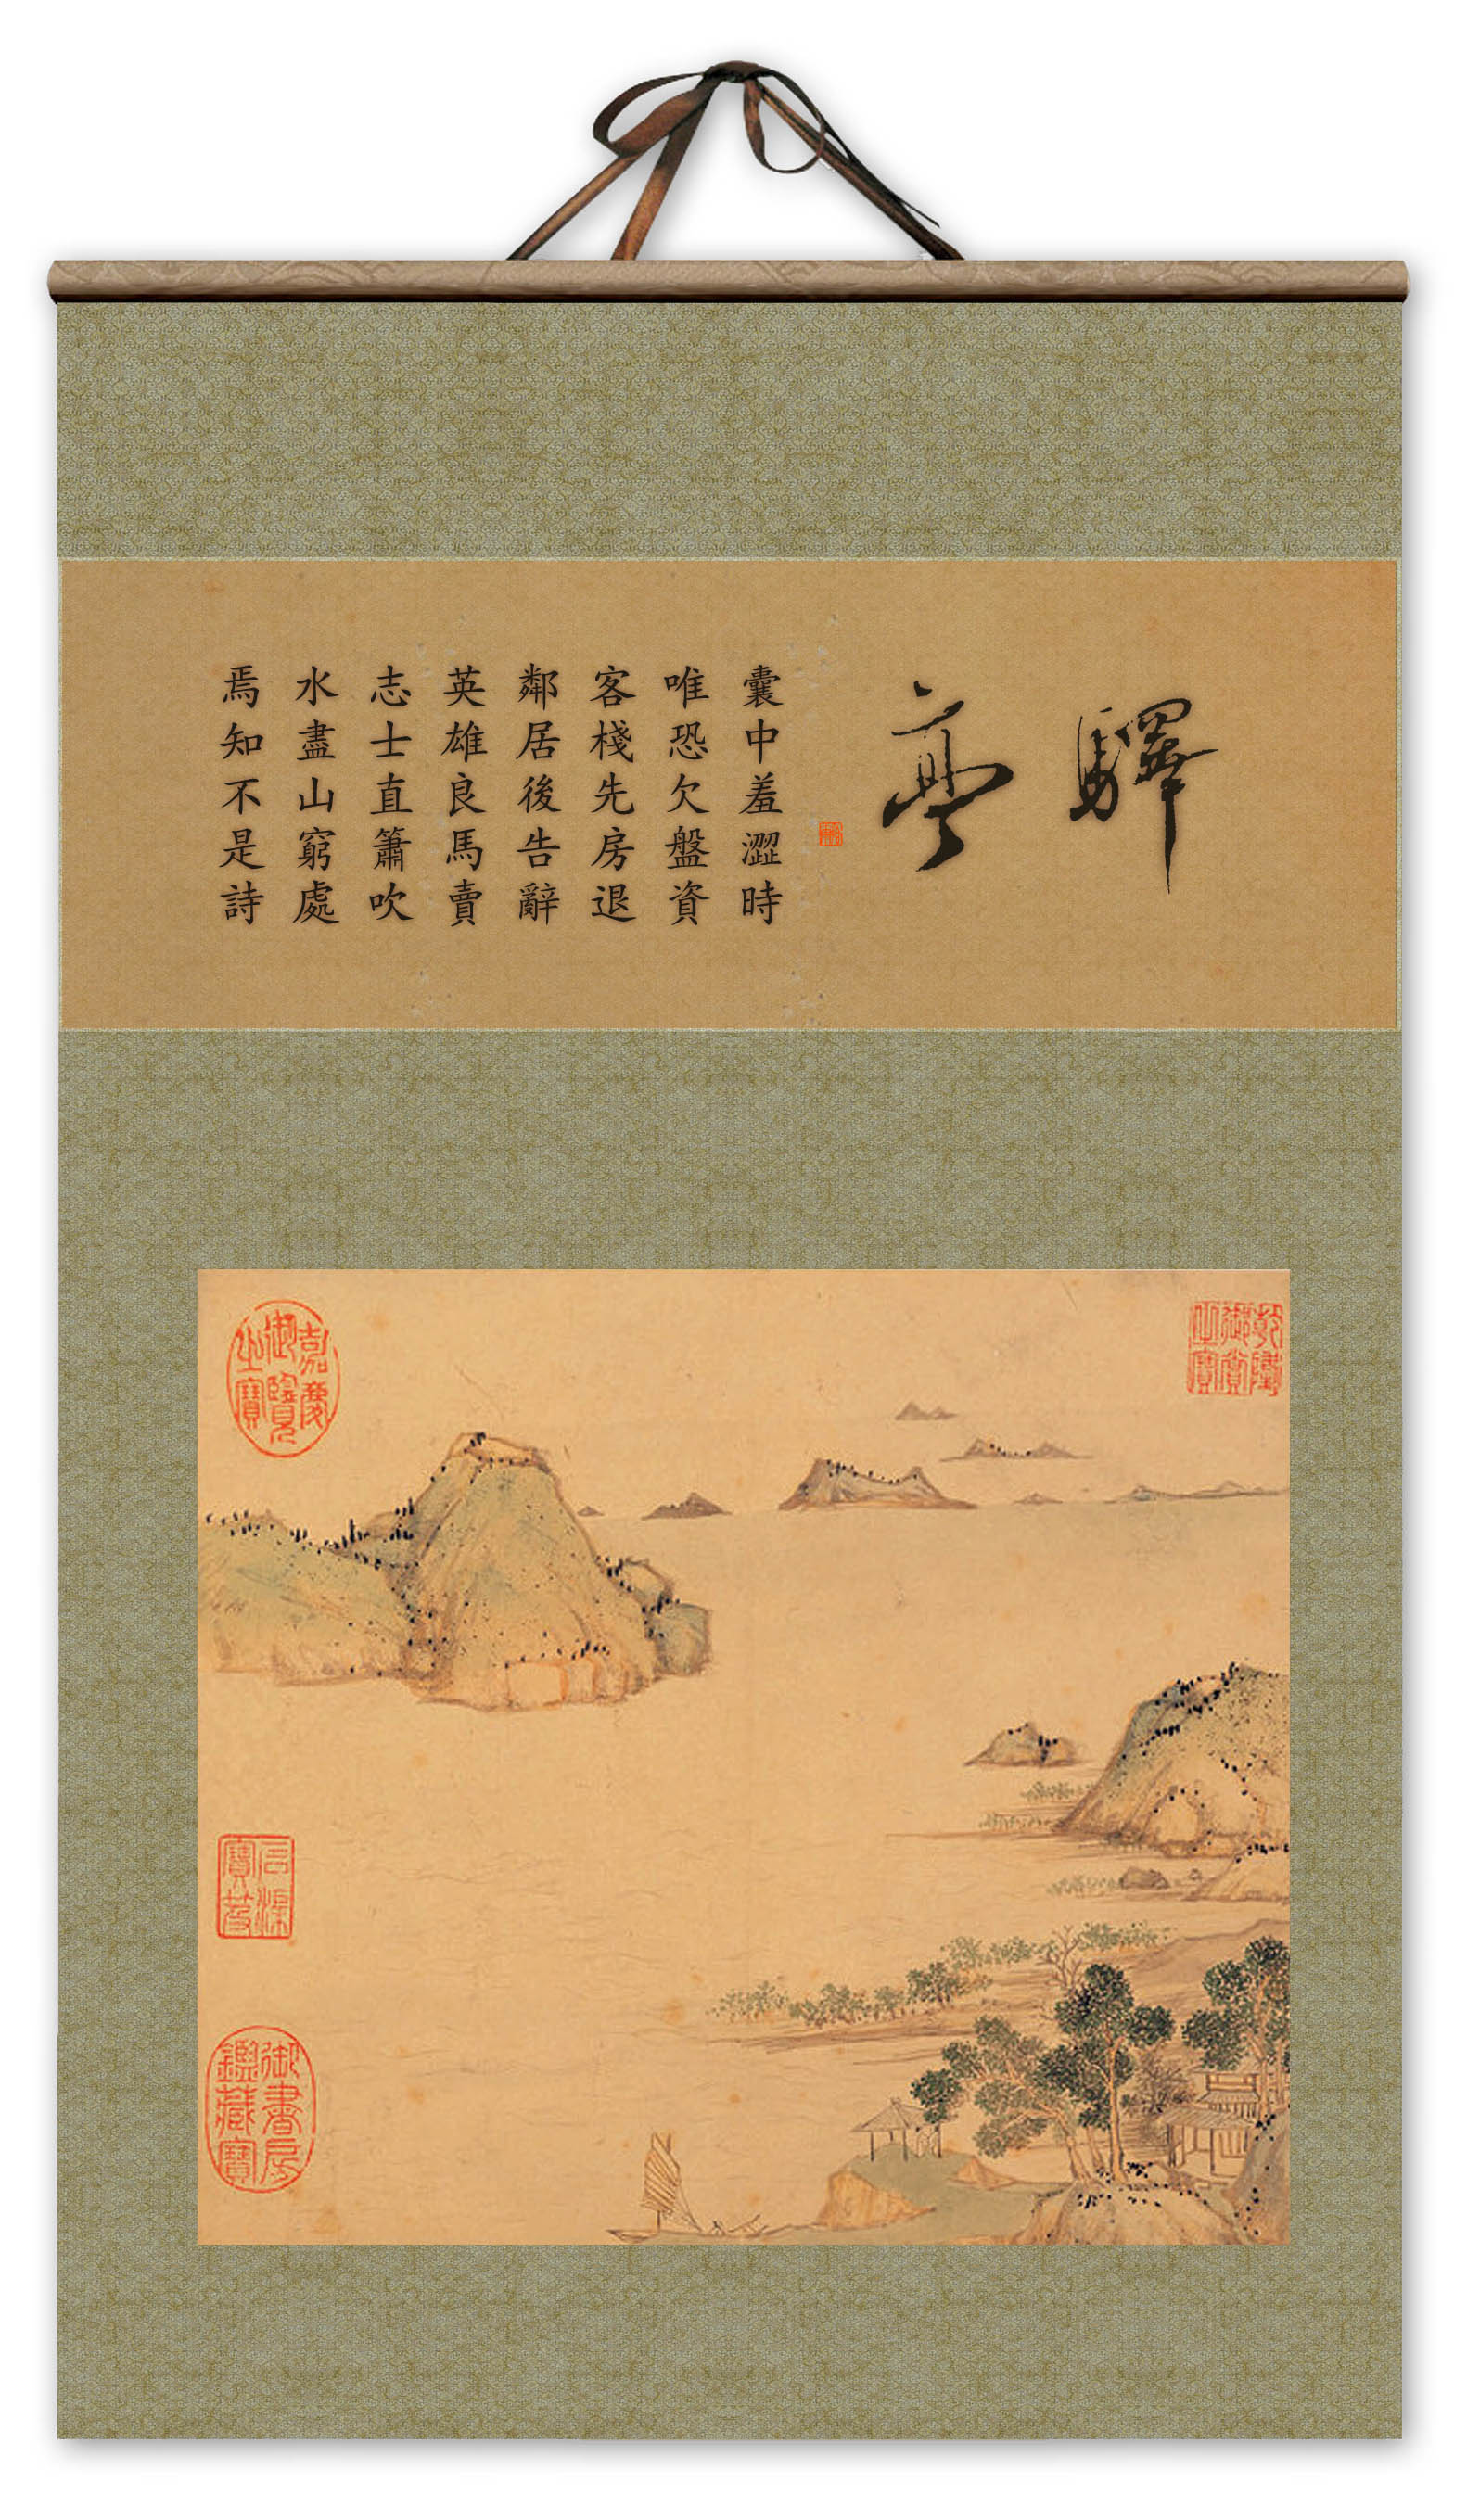 驛亭
囊中羞澀時
唯恐欠盤資
客棧先房退
鄰居後告辭
英雄良馬賣
志士直簫吹
水盡山窮處
焉知不是詩
乾隆御賞之寶
嘉慶御覽之寶
石渠寶笈
御書房鑑藏寶